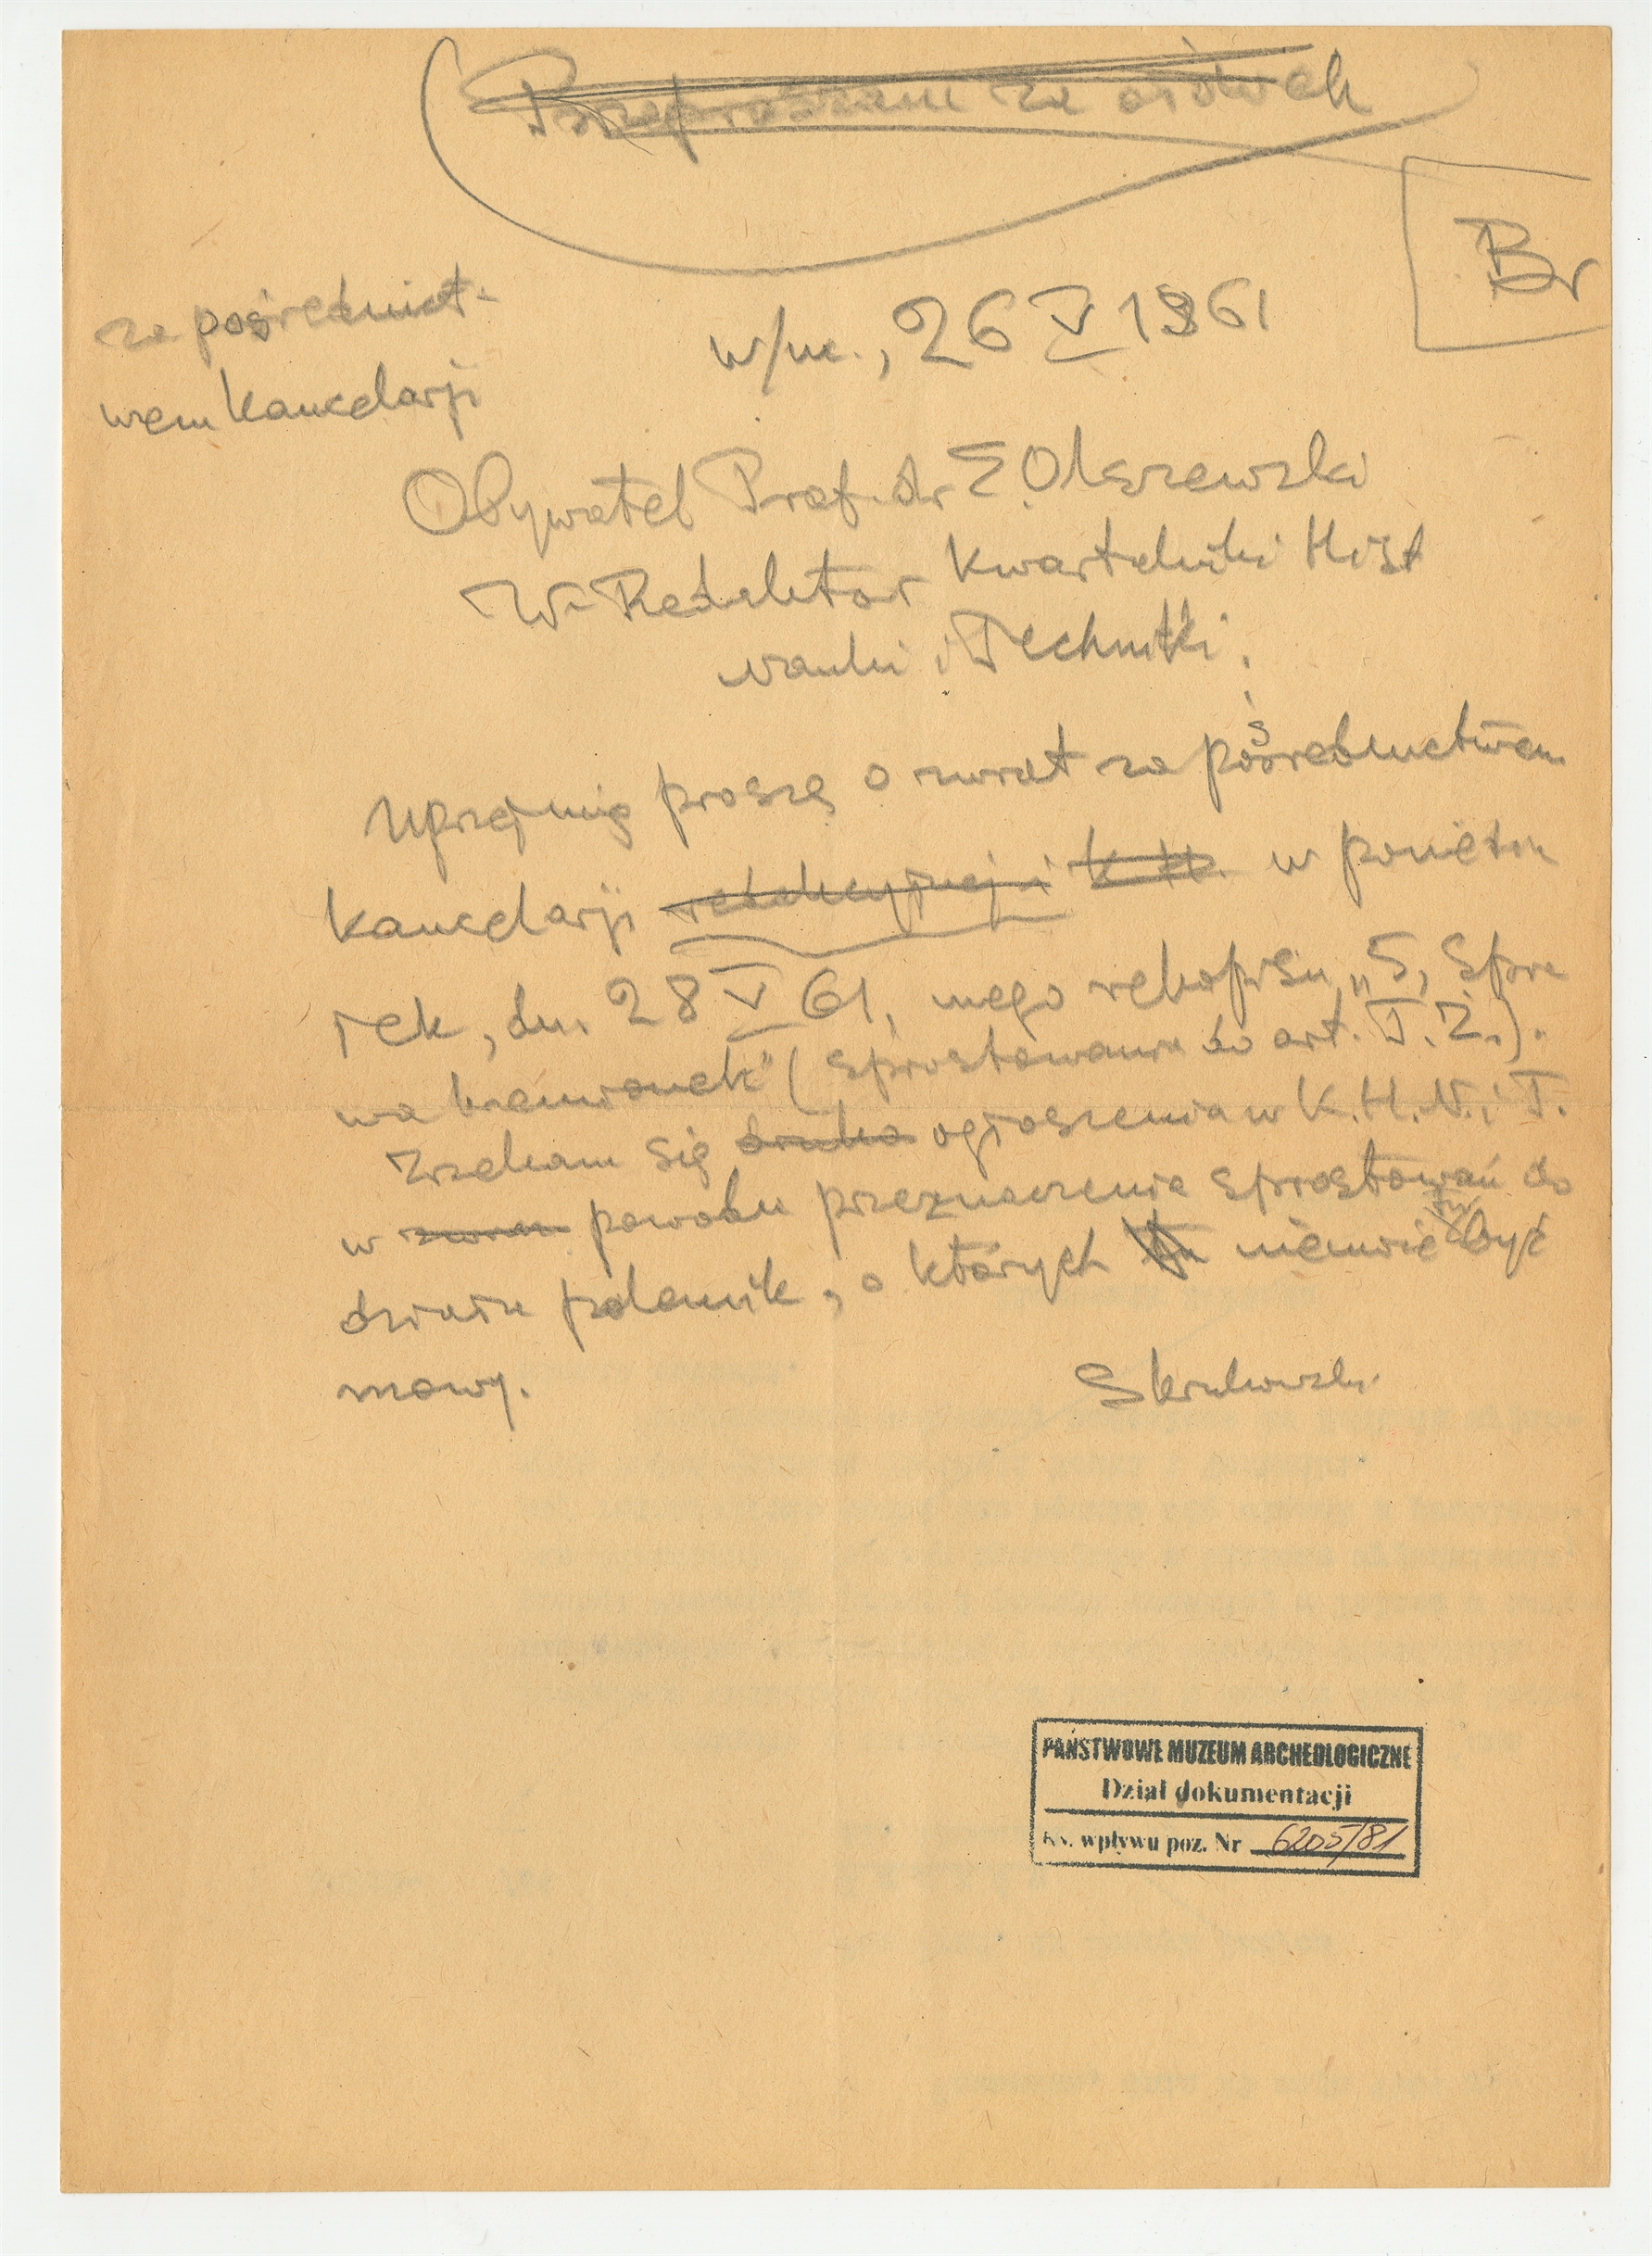 Przepraszam za ołówek
Br
za pośrednict-
wem kancelarji
w/m., 26 V 1961
Obywatel Prof. dr E. Olszewski
Redaktor Kwartalnika Hist
Nauki i Techniki.
Uprzejmie proszę o zwrot za pośrednictwem
kancelarji redakcyjnej i K H. w poniedzia
łek, dn. 28 V 61, mego rękopisu „5, Spra
wa krzemionek" (sprostowania do art. T. Ż.).
Zrzekam się druku ogłoszenia w K.H.N. i T.
w powodu przeznaczenia sprostowań do
działu polemik, o których nie może być
mowy.
Skrukowski
PAŃSTWOWE MUZEUM ARCHEOLOGICZNE
Dział dokumentacji
Ks. wpływu poz. Nr 6205/81